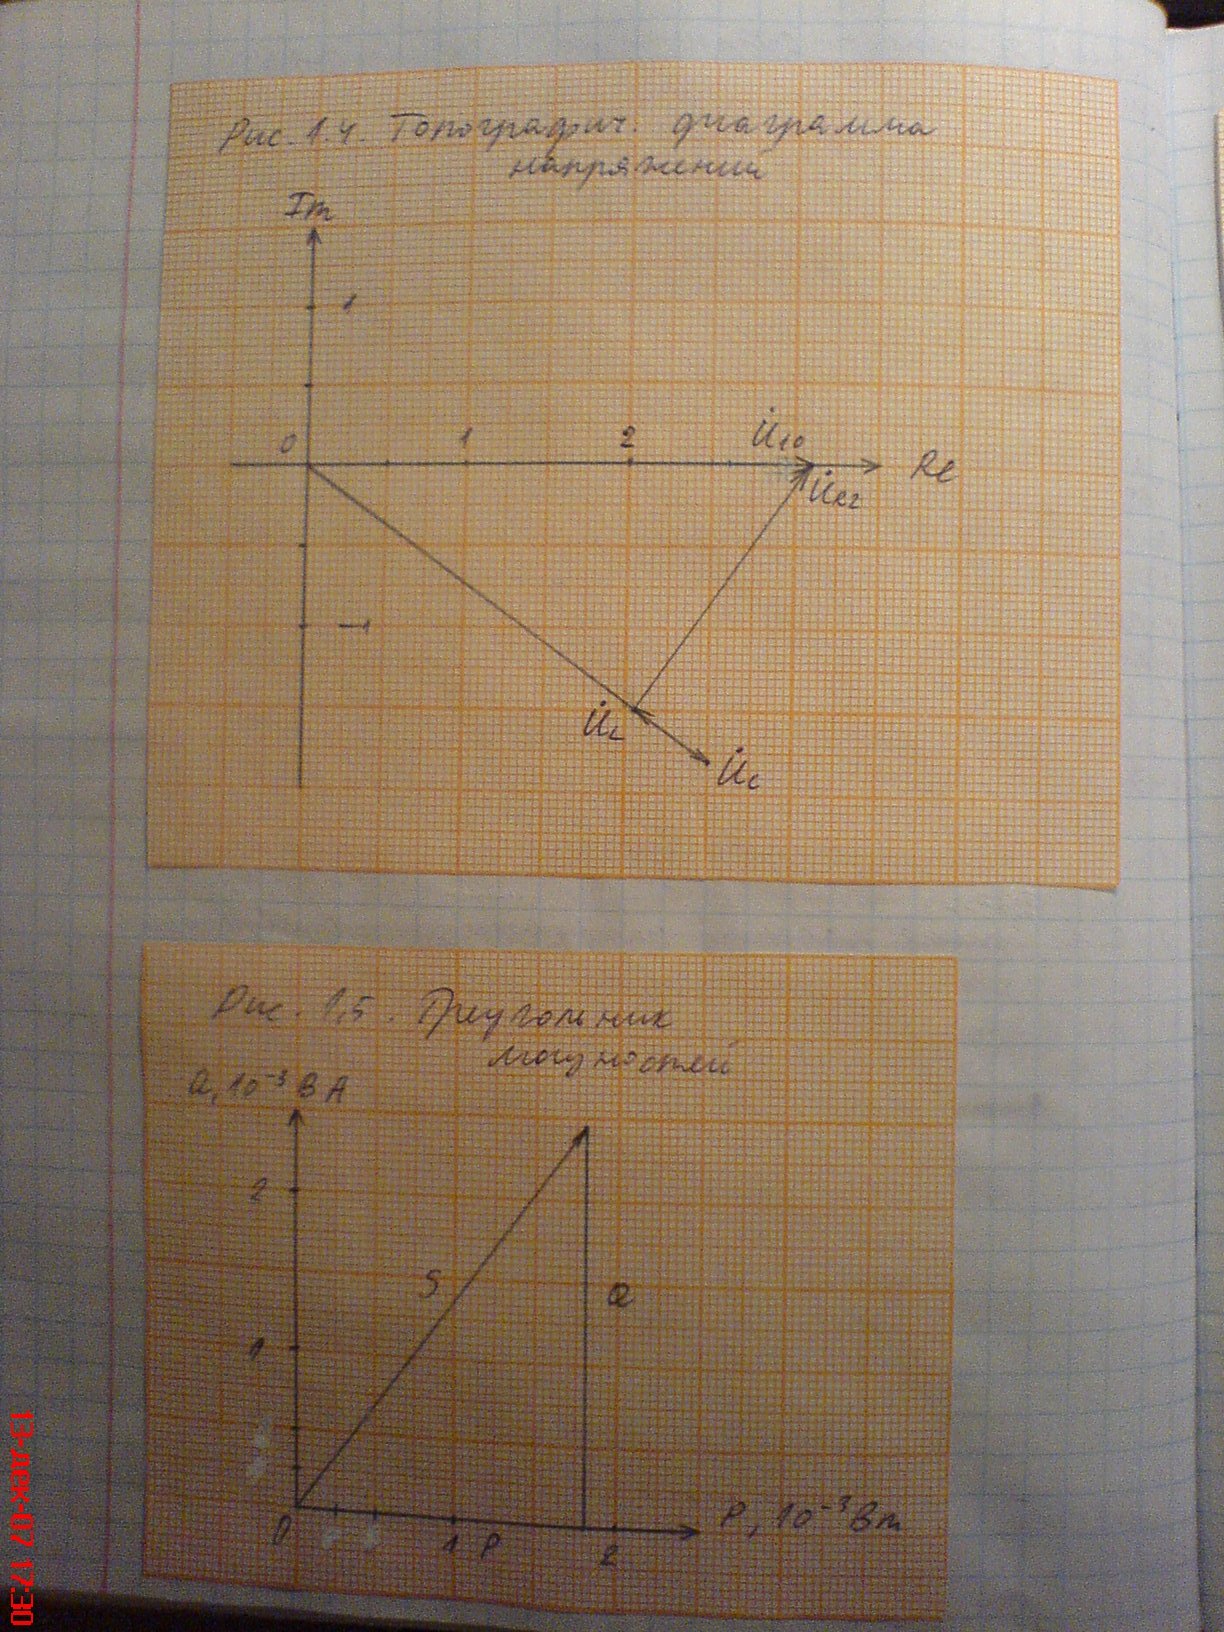 Рис. 1.4. Топографич. диаграмма
напряжений
Im
1
0
1
2
U̇10
Re
U̇R2
-1
U̇L
U̇C
Рис. 1.5. Треугольник
мощностей
Q, 10⁻³ ВА
2
S
Q
1
0
1
P
2
P, 10⁻³ Вт
13-дек-07 17:30